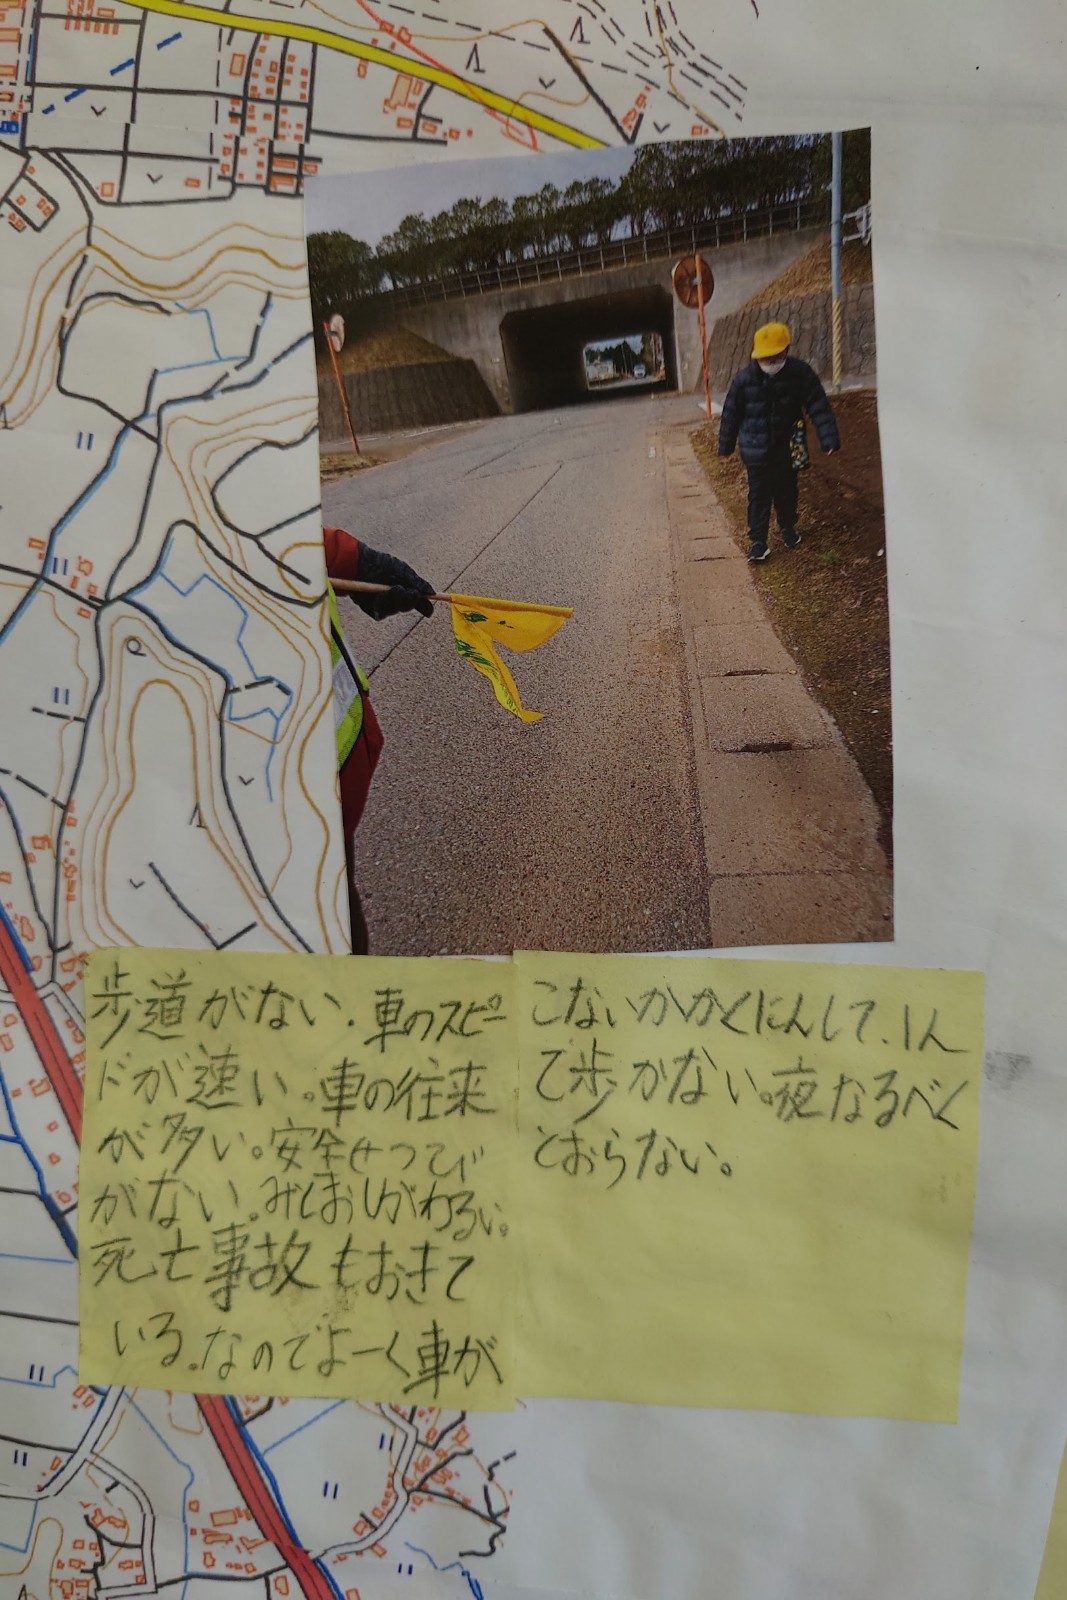 歩道がない.車のスピー
ドが速い。車の往来
が多い。安全せつび
がない。みとおしがわるい。
死亡事故もおきて
いる.なのでよーく車が
こないかかくにんして.1人
で歩かない。夜なるべく
とおらない。